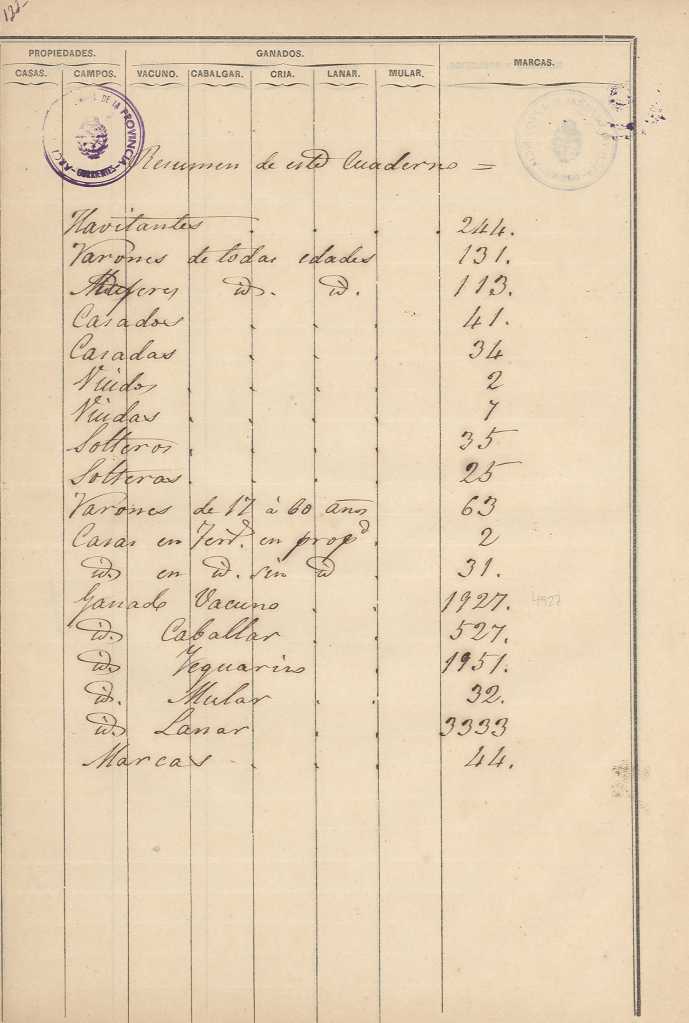 122
PROPIEDADES. GANADOS. MARCAS.
CASAS. CAMPOS. VACUNO. CABALGAR. CRIA. LANAR. MULAR.
DE LA PROVINCIA CORRIENTES
Resumen de este Cuaderno =
Havitantes . . . . 244.
Varones de todas edades 131.
Mujeres id. id. 113.
Casados . . . 41.
Casadas . . . 34
Viudos . . . . 2
Viudas . . . . 7
Solteros . . . . 35
Solteras . . . . 25
Varones de 17 à 60 años 63
Casas en Terr.º en prop.d . 2
id. en id. sin id . 31.
Ganado Vacuno . . 1927. 4927
id. Caballar . . 527.
id Yeguarino . . 1951.
id. Mular . . 32.
id. Lanar . . 3333
Marcas . . . 44.